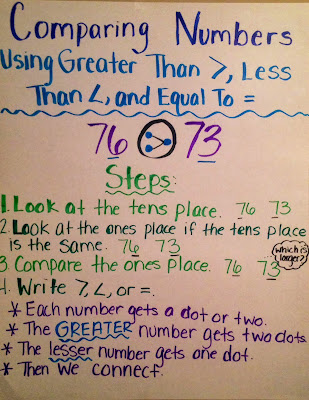 Comparing Numbers
Using Greater Than >, Less
Than <, and Equal To =
76 > 73
Steps:
1. Look at the tens place. 76 73
2. Look at the ones place if the tens place
is the same. 76 73
which is larger?
3. Compare the ones place. 76 73
4. Write >, <, or =.
* Each number gets a dot or two.
* The GREATER number gets two dots.
* The lesser number gets one dot.
* Then we connect.